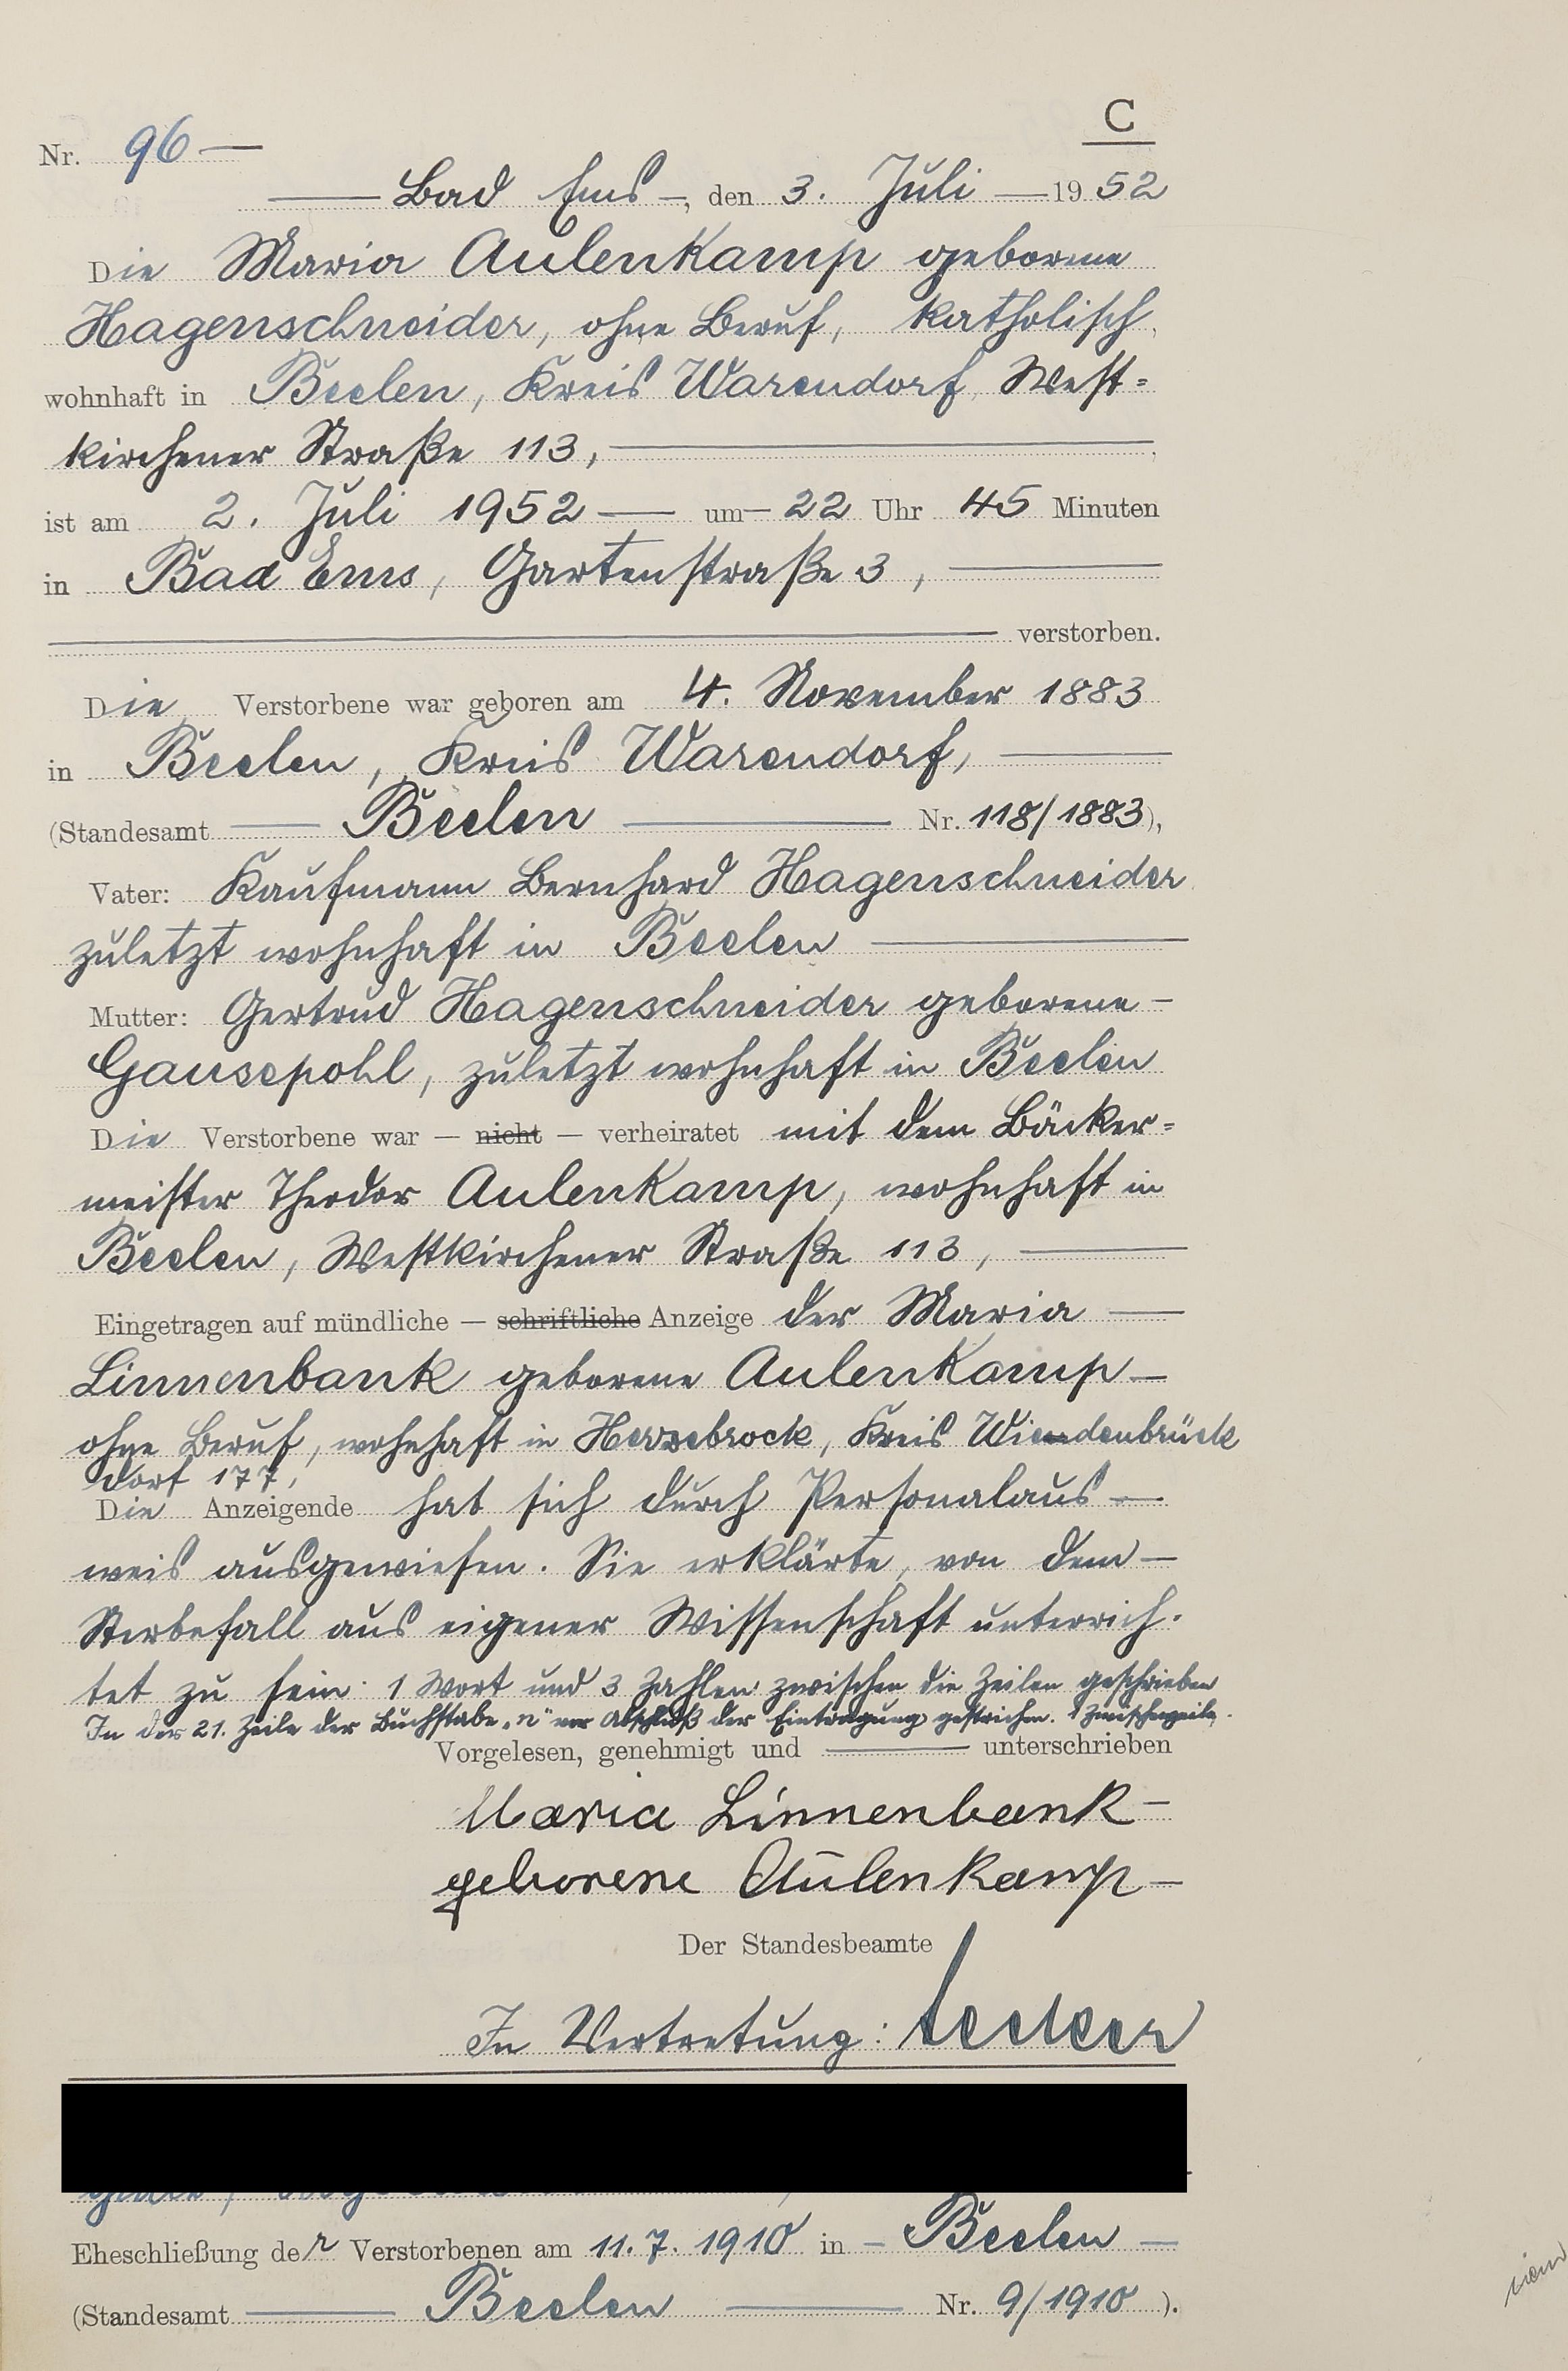 C
Nr. 96 —
— Bad Ems —, den 3. Juli — 1952
Die Maria Aulenkamp geborene
Hagenschneider, ohne Beruf, katholisch
wohnhaft in Beelen, Kreis Warendorf, West=
kirchener Straße 113, —
ist am 2. Juli 1952 — um — 22 Uhr 45 Minuten
in Bad Ems, Gartenstraße 3, —
— verstorben.
Die Verstorbene war geboren am 4. November 1883
in Beelen, Kreis Warendorf, —
(Standesamt — Beelen — Nr. 118/1883),
Vater: Kaufmann Bernhard Hagenschneider
zuletzt wohnhaft in Beelen —
Mutter: Gertrud Hagenschneider geborene —
Gausepohl, zuletzt wohnhaft in Beelen
Die Verstorbene war — nicht — verheiratet mit dem Bäcker=
meister Theodor Aulenkamp, wohnhaft in
Beelen, Westkirchener Straße 113, —
Eingetragen auf mündliche — schriftliche Anzeige der Maria —
Linnenbank geborene Aulenkamp —
ohne Beruf, wohnhaft in Herzebrock, Kreis Wiendenbrück
Dorf 177,
Die Anzeigende hat sich durch Personalaus —
weis ausgewiesen. Sie erklärte, von dem —
Sterbefall aus eigener Wissenschaft unterrich-
tet zu sein. 1 Wort und 3 Zahlen zwischen die Zeilen geschrieben
In der 21. Zeile der Buchstabe „n" vor Abschluß der Eintragung gestrichen. 1 Zwischenzeile.
Vorgelesen, genehmigt und — unterschrieben
Maria Linnenbank —
geborene Aulenkamp —
Der Standesbeamte
In Vertretung:
Eheschließung der Verstorbenen am 11.7.1910 in — Beelen —
(Standesamt — Beelen — Nr. 9/1910).